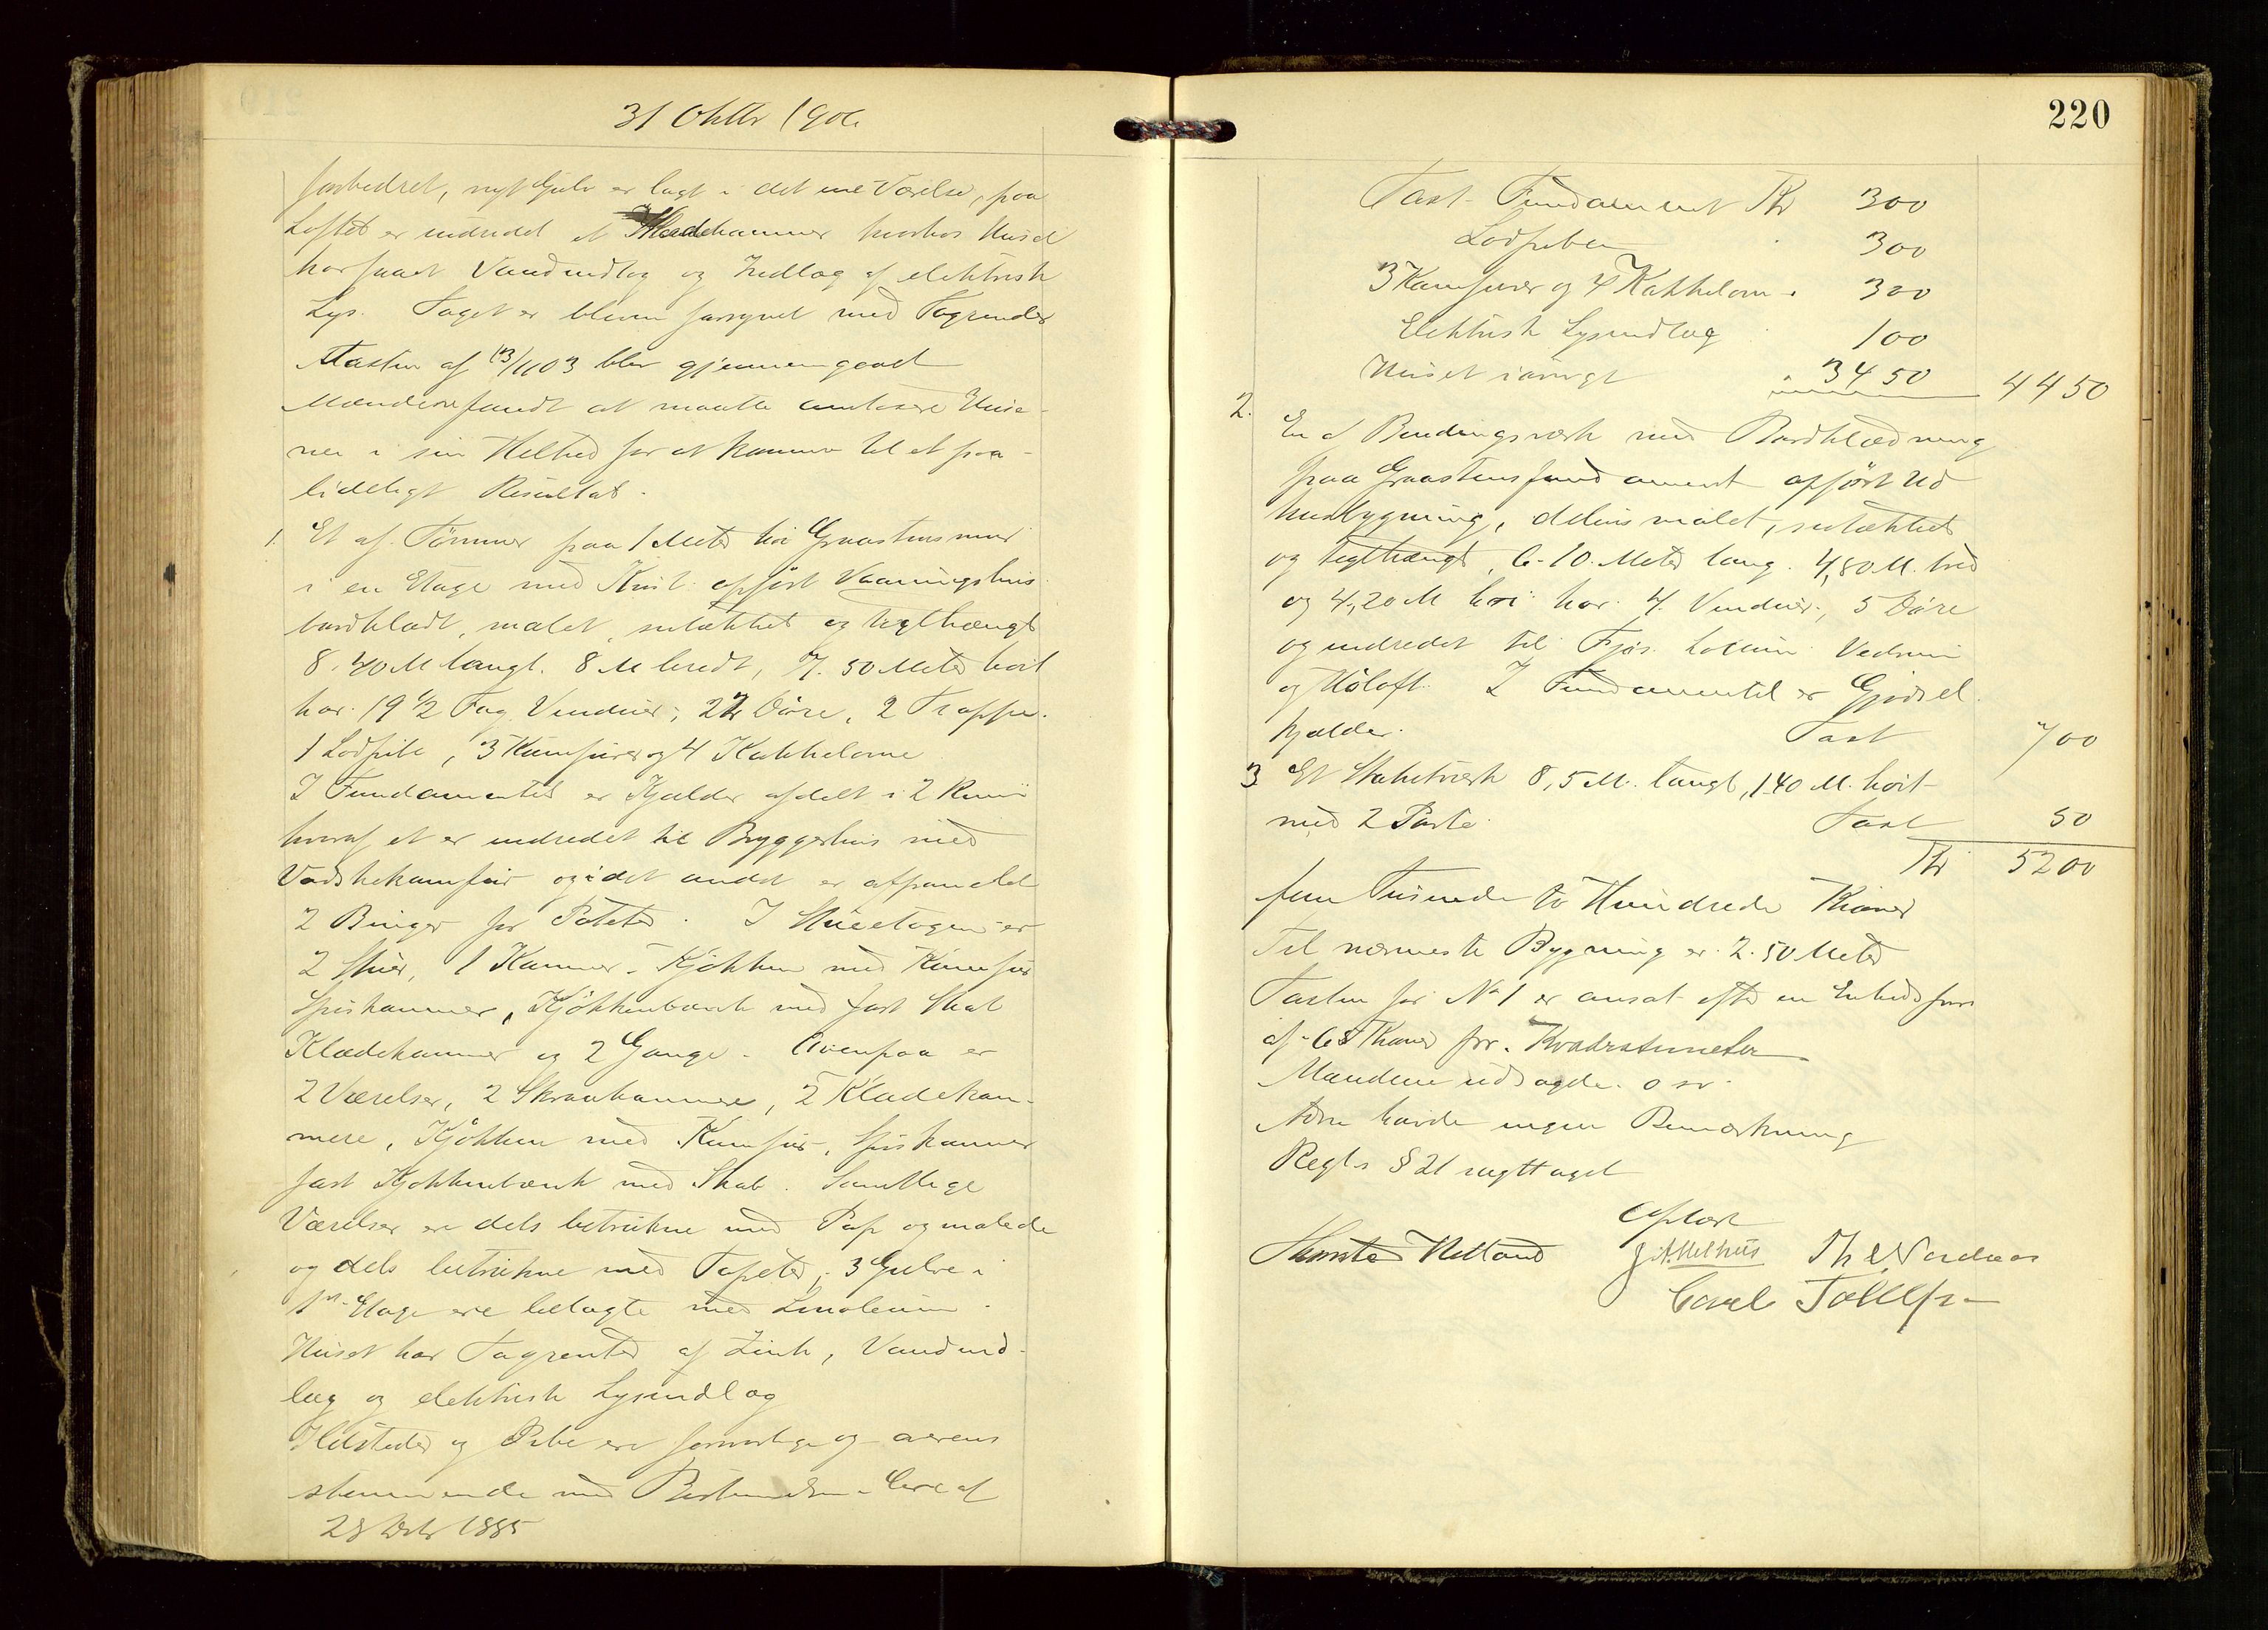 31 Oktbr 1906
forbedret, nyt Gulv er lagt i det ene Værelse, paa
Loftet er indredet et Klædekammer hvorhos Huset
har faaet Vandindlæg og Indlæg af elektrisk
Lys. Taget er bleven forsynet med Tagrender
Taxten af 13/11 03 blev gjennemgaaet
Mændene fandt at maatte omtaxere Huse-
ne i sin Helhed for at komme til et paa-
lideligt Resultat.
1. Et af Tømmer paa 1 Meter høi Graastensmur
i en Etage med Kvist opført Vaaningshus
bordklædt, malet, sutækket og teglhængt
8.40 M langt. 8 M bredt, 7.50 Meter høit
har 19 1/2 Fag Vinduer, 22 Døre, 2 Trapper
1 Lodpibe, 3 Komfurer og 4 Kakkelovne
I Fundamentet er Kjælder afdelt i 2 Rum
hvoraf et er indredet til Bryggerhus med
Vadskekomfur og i det andet er afpanelet
2 Binger for Poteter. I Stueetagen er
2 Stuer, 1 Kammer, Kjøkken med Komfur
Spiskammer, Kjøkkenbænk med fast Skab
Klædekammer og 2 Gange. Ovenpaa er
2 Værelser, 2 Skraakammere, 2 Klædekam-
mere, Kjøkken med Komfur, Spiskammer
fast Kjøkkenbænk med Skab. Samtlige
Værelser ere dels betrukne med Pap og malede
og dels betrukne med Tapeter, 3 Gulve i
1ste Etage ere belagte med Linoleum.
Huset har Tagrender af Zink, Vandind-
læg og elektrisk Lysindlæg
Ildsteder og Pibe ere forsvarlige og overens
stemmende med Bestemmelsen i Lov af
28 1885
220
Taxt Fundament Kr 300
Lodpiben 300
3 Komfurer og 4 Kakkelovne 300
Elektrisk Lysindlæg 100
Huset iøvrigt 3450 4450
2. En af Bindingsverk med Bordklædning
paa Graastensfundament opført Ud
husbygning, delvis malet, sutækket
og teglhængt, 6.10 Meter lang. 4,80 M. bred
og 4,20 M høi har 4 Vinduer, 5 Døre
og indredet til Fjøs Locum Vedrum
og Høloft. I Fundamentet er Gjødsel
kjælder. Taxt 700
3 Et Stakitværk 8,5 M. langt, 1.40 M. høit
med 2 Porte Taxt 50
Kr 5200
fem Tusinde to Hundrede Kroner
Til nærmeste Bygning er 2.50 Meter
Taxten for No 1 er ansat efter en Enhedspris
af 65 Kroner for Kvadratmeter
Mændene udsagde o sv.
ingen Bemærkning
Regl s § 21 iagttaget
Oplæst
Helland J. A. Melhus Th. S. Nordaas
Carl Tollefsen